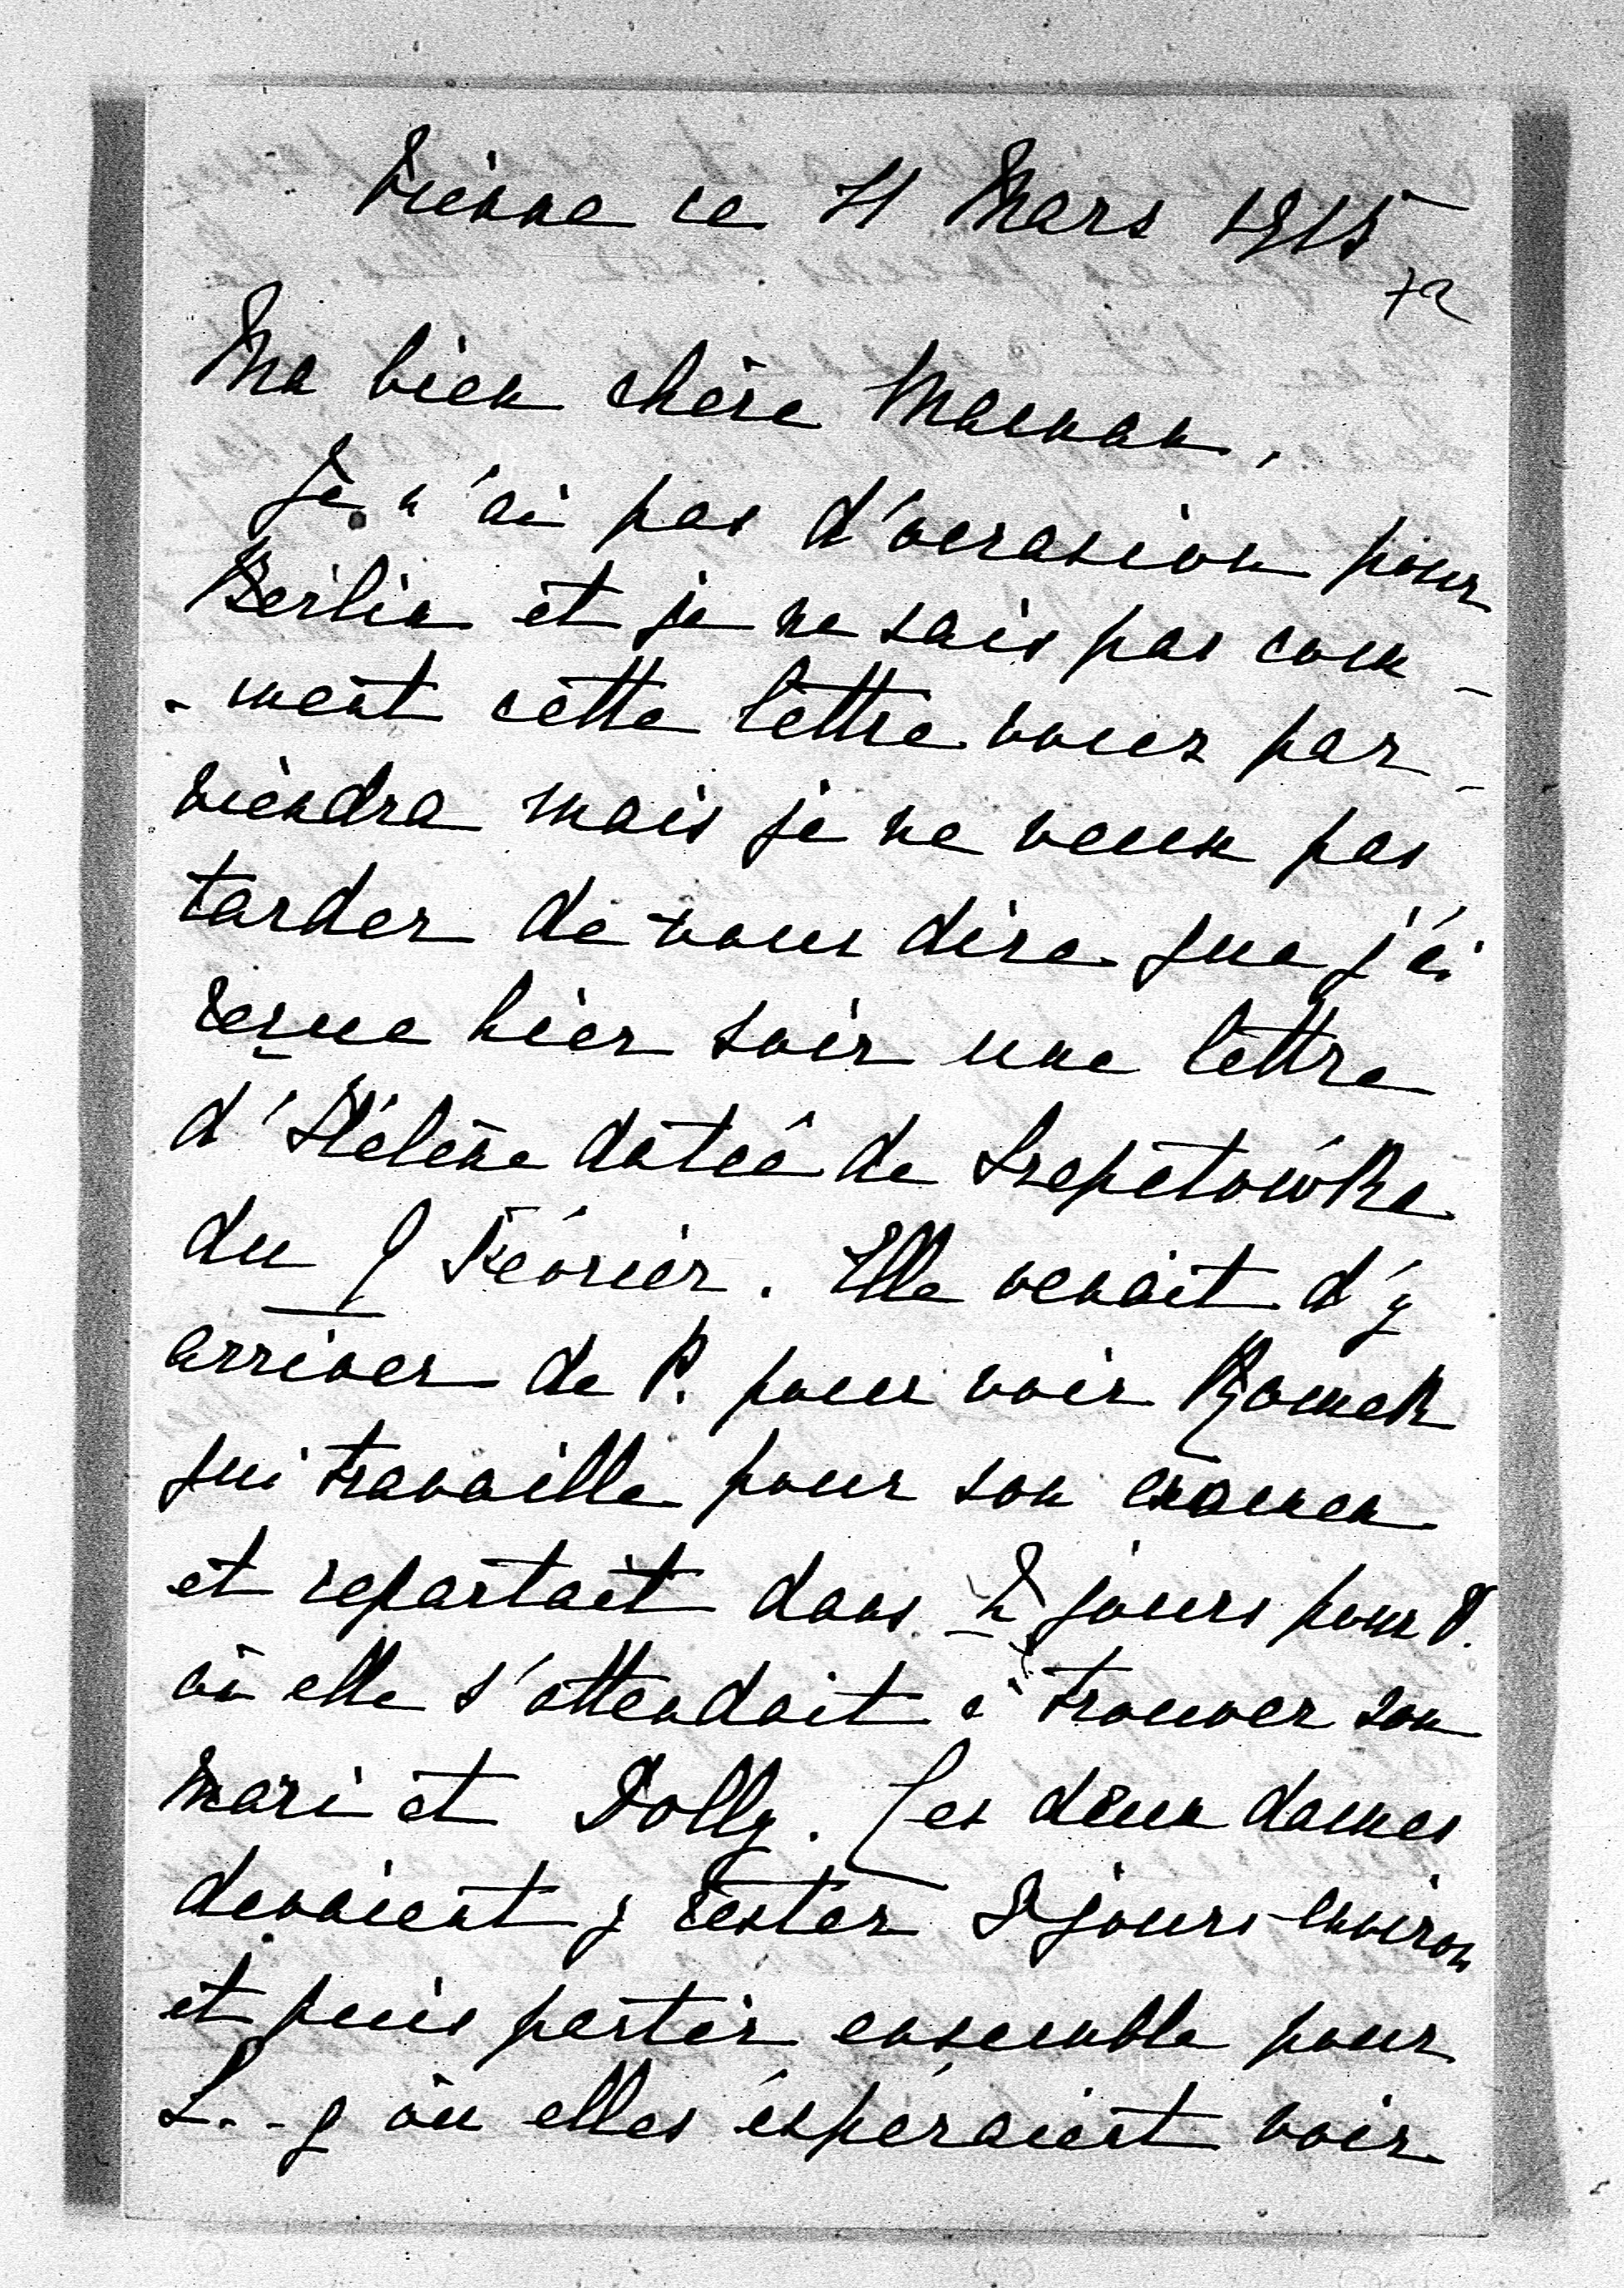 Vienne ce 11 Mars 1915
72
Ma bien chère Maman,
Je n'ai pas d'occasion pour
Berlin et je ne sais pas com-
-ment cette lettre vous par-
viendra mais je ne veux pas
tarder de vous dire que j'ai
reçue hier soir une lettre
d'Hélène datée de Szepetówka
du 9 Février. Elle venait d'y
arriver de P. pour voir Romek
qui travaille pour son examen
et repartait dans 2 jours pour P.
où elle s'attendait à trouver son
mari et Dolly. Ces deux dames
devaient y rester 8 jours environ
et puis partir ensemble pour
L..g où elles espéraient voir